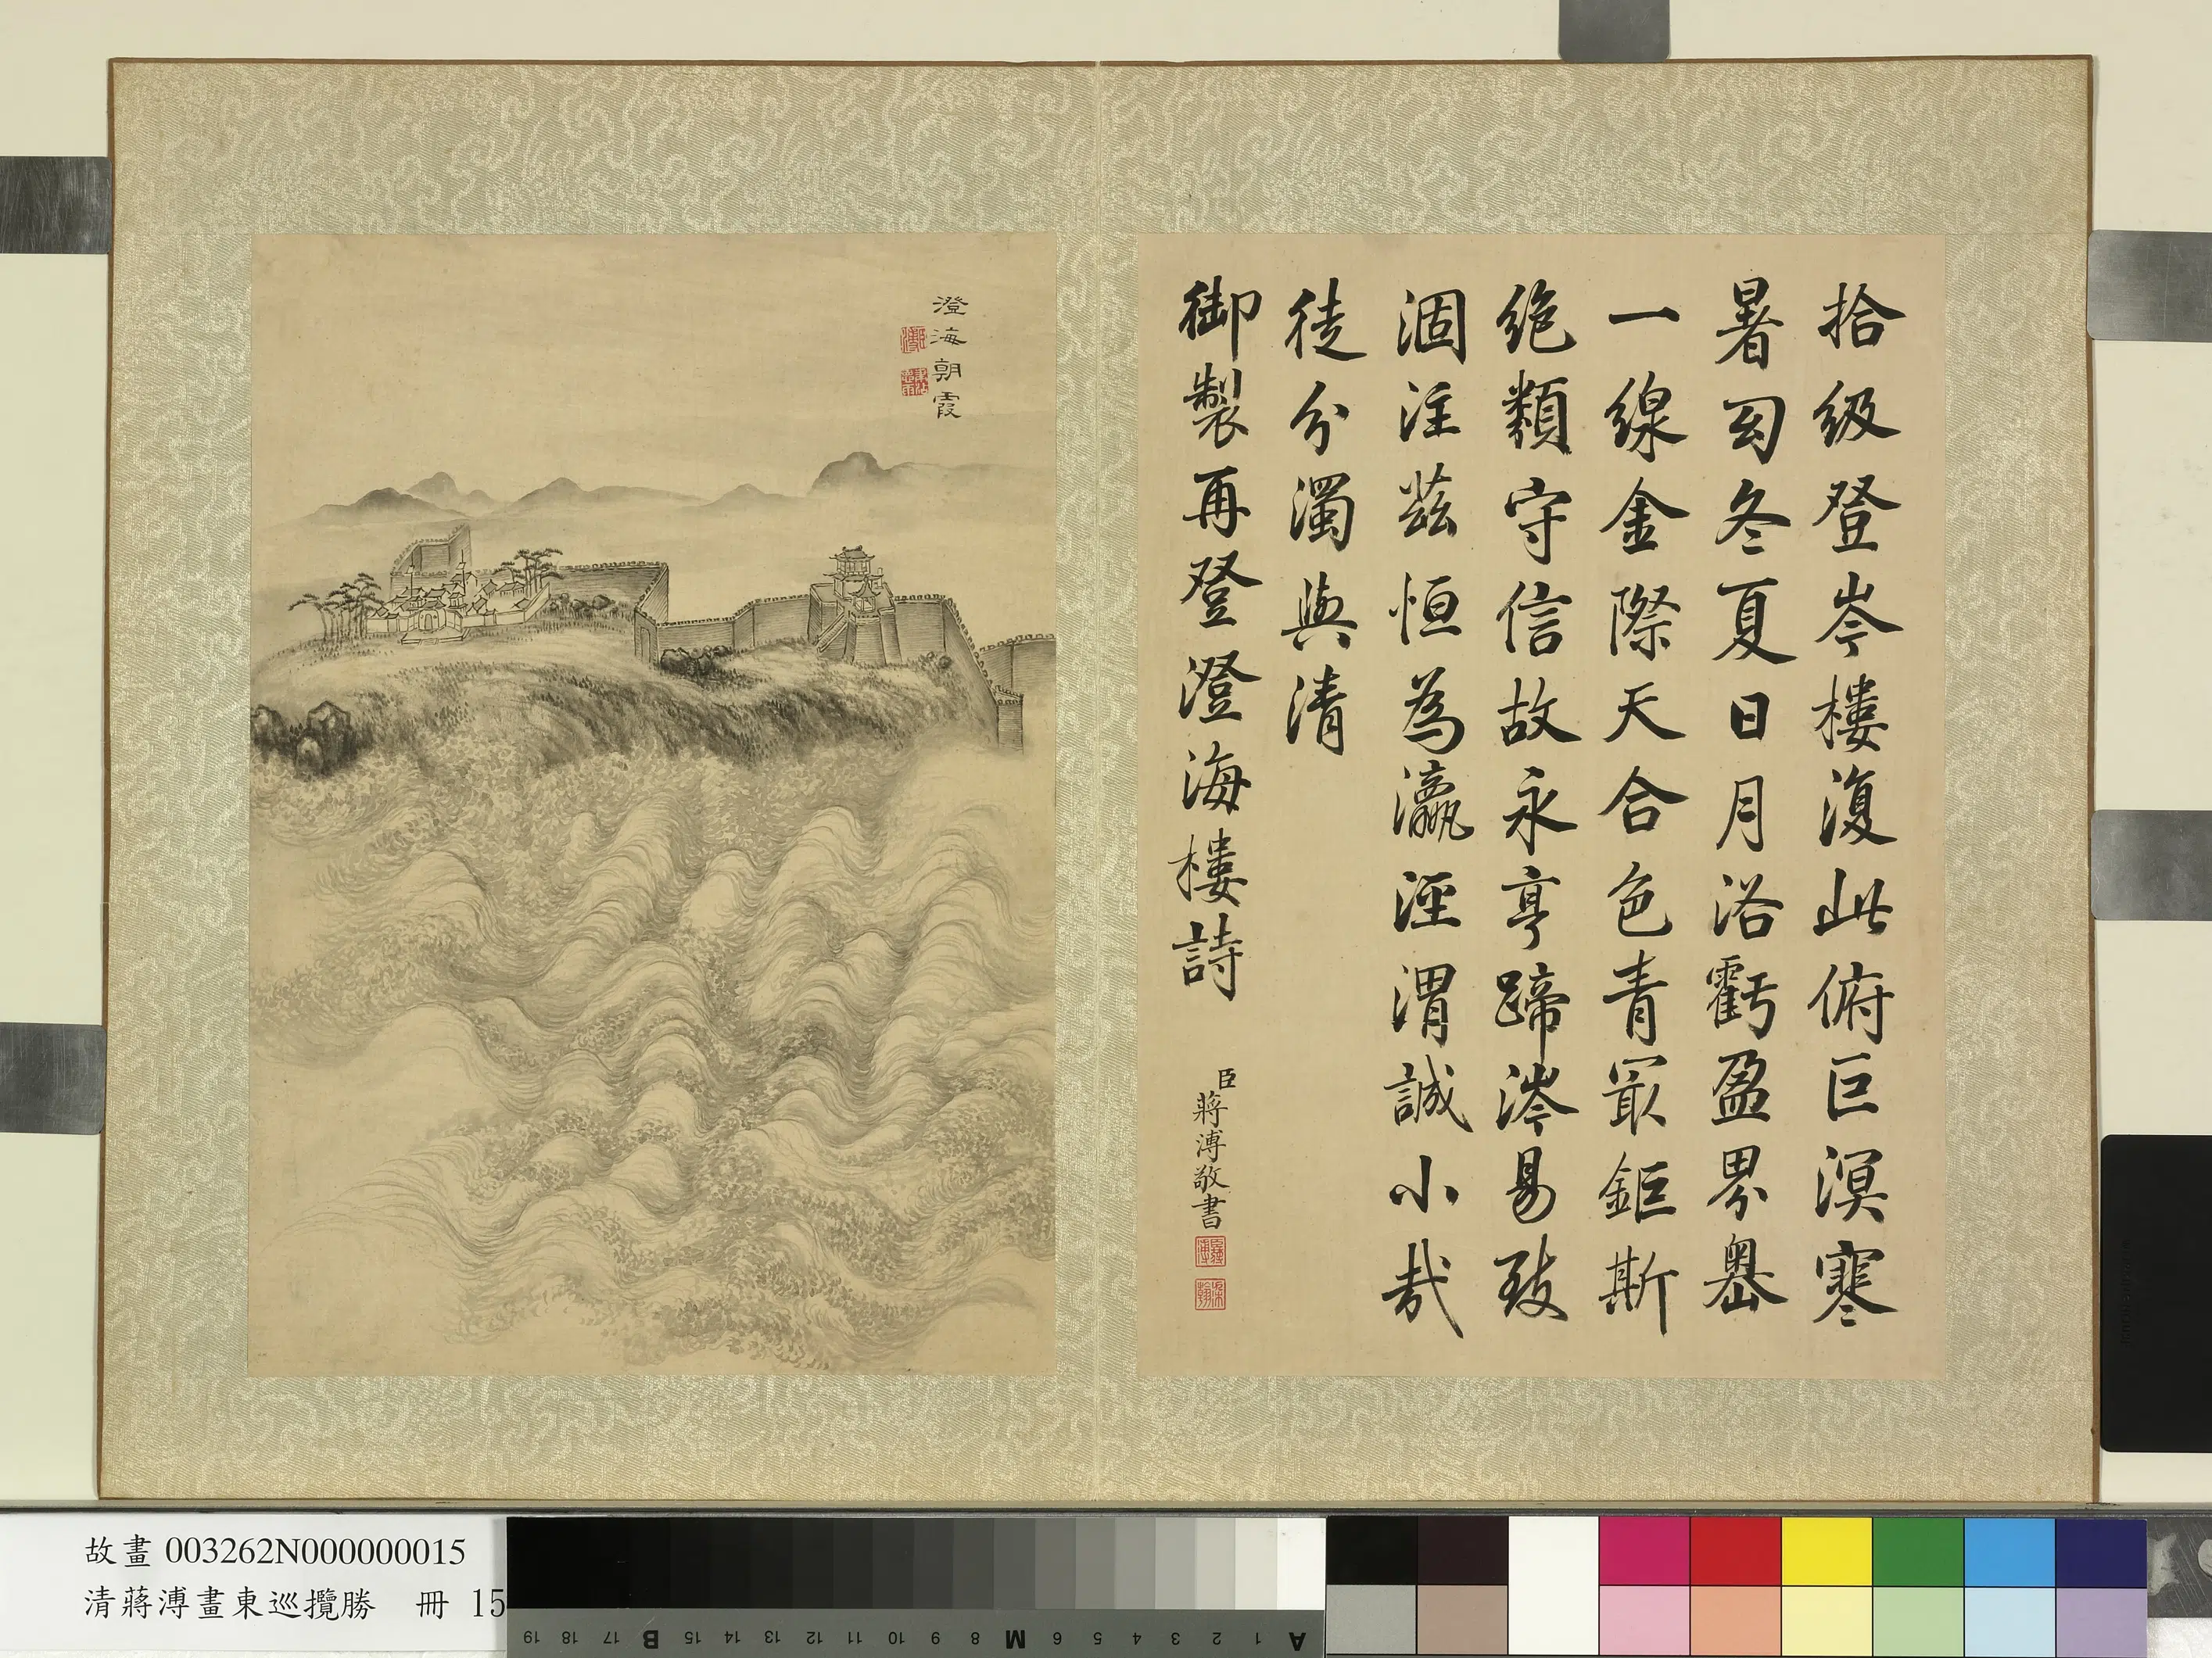 拾級登岑樓復此俯巨溟寒
暑勻冬夏日月浴虧盈界嶴
一線金際天合色青最鉅斯
絕類守信故永亨蹄涔易致
涸注茲恒為瀛涇渭誠小哉
徒分濁與清
御製再登澄海樓詩
臣蔣溥敬書
澄海朝霞
故畫 003262N000000015
清蔣溥畫東巡攬勝 冊 15
A 1 2 3 4 5 6 M 8 9 10 11 12 13 14 15 B 17 18 19